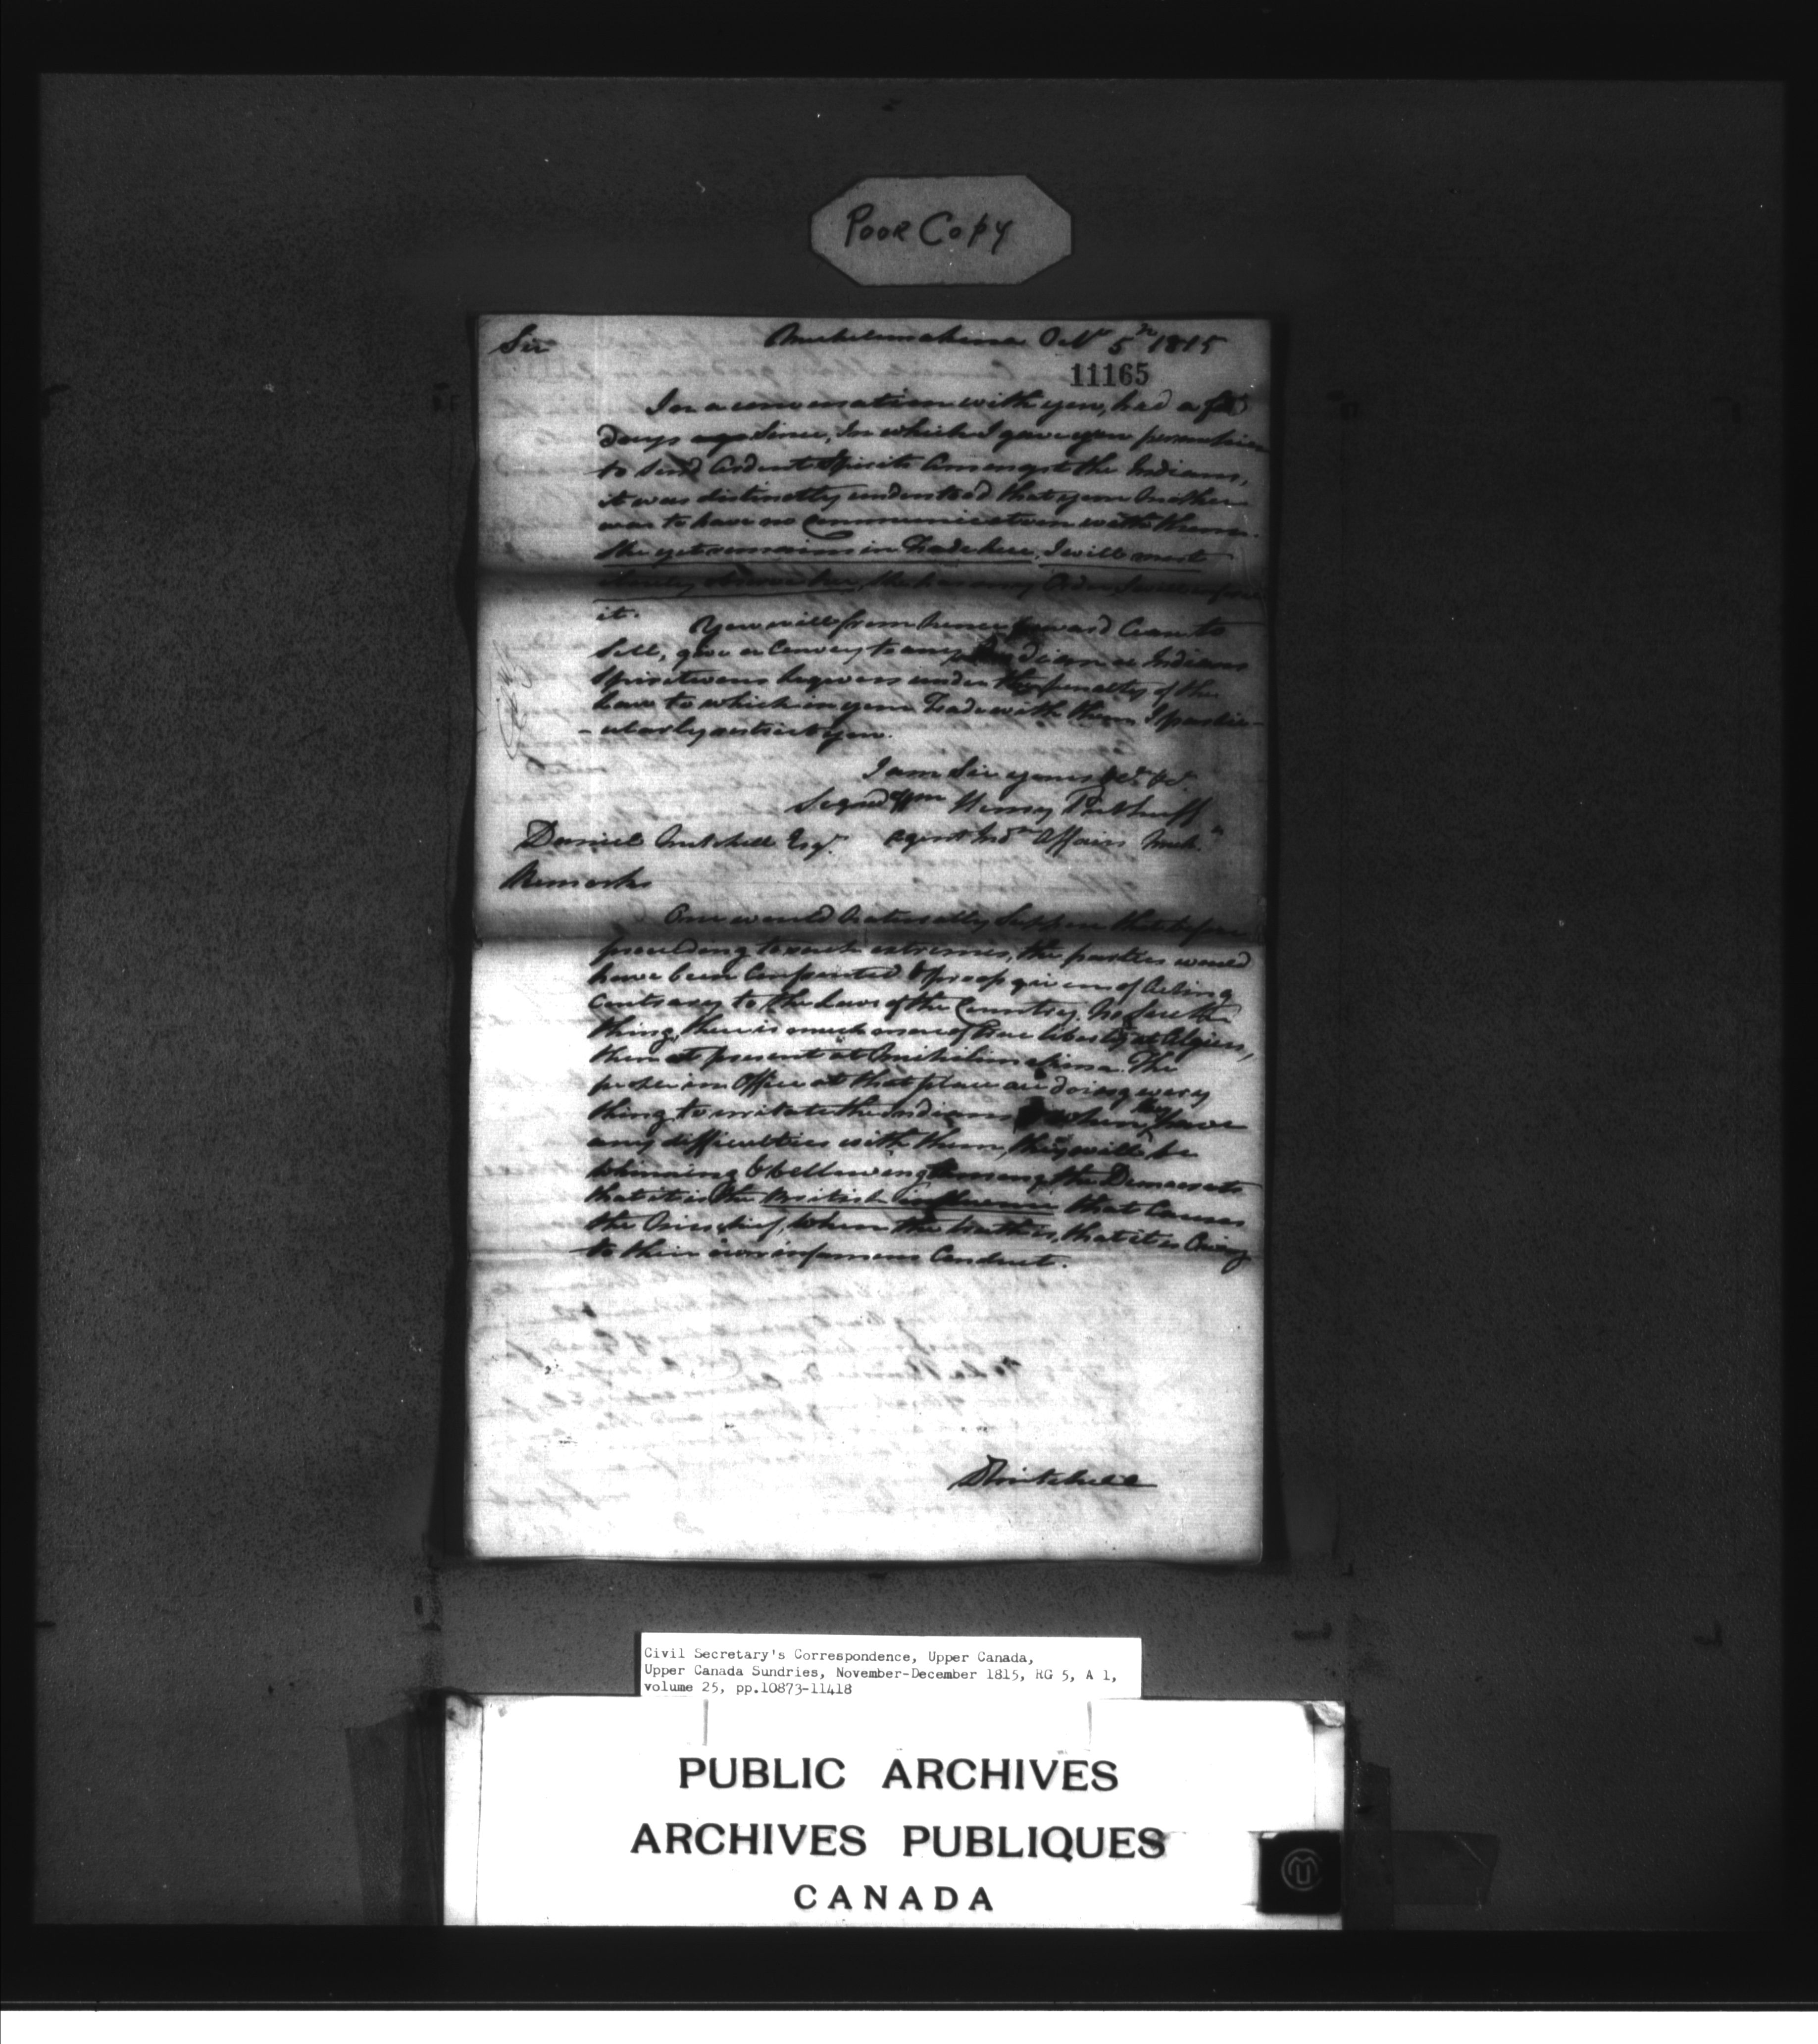 Poor Copy
Sir Michilimackinac Octr 5th 1815
11165
In a conversation with you, had a few
days ago since, In which I gave you permission
to send Ardent Spirits Amongst the Indians,
it was distinctly understood that your Mother
was to have no Communication with them.
She yet remains in Trade here, I will most
observe her, She has my Orders
it.
You will from hence forward Cease to
Sell, give or Convey to any Indian or Indians
Spirituous liquors under the penalty of the
Law to which in your Trade with them I partic-
-ularly restrict you.
I am Sir yours &c. &c.
Signed Wm Henry Puthuff
Daniel Mitchell Esqr. Agent Indn Affairs Mack.
Remarks
One would Naturally Suppose that before
proceeding to such extremes, the parties would
have been Confronted & proof given of Acting
Contrary to the Laws of the Country. No Such
thing, there is much more of true liberty at Algiers,
than at present at Michilimackinac. The
people in Office at that place are doing every
thing to irritate the Indians & when they have
any difficulties with them, they will be
whining & bellowing among the Democrats
that it is the British influence that Causes
the Mischief, When the truth is, that it is Owing
to their own infamous Conduct.
DMitchell
Civil Secretary's Correspondence, Upper Canada,
Upper Canada Sundries, November-December 1815, RG 5, A 1,
volume 25, pp.10873-11418
PUBLIC ARCHIVES
ARCHIVES PUBLIQUES
CANADA